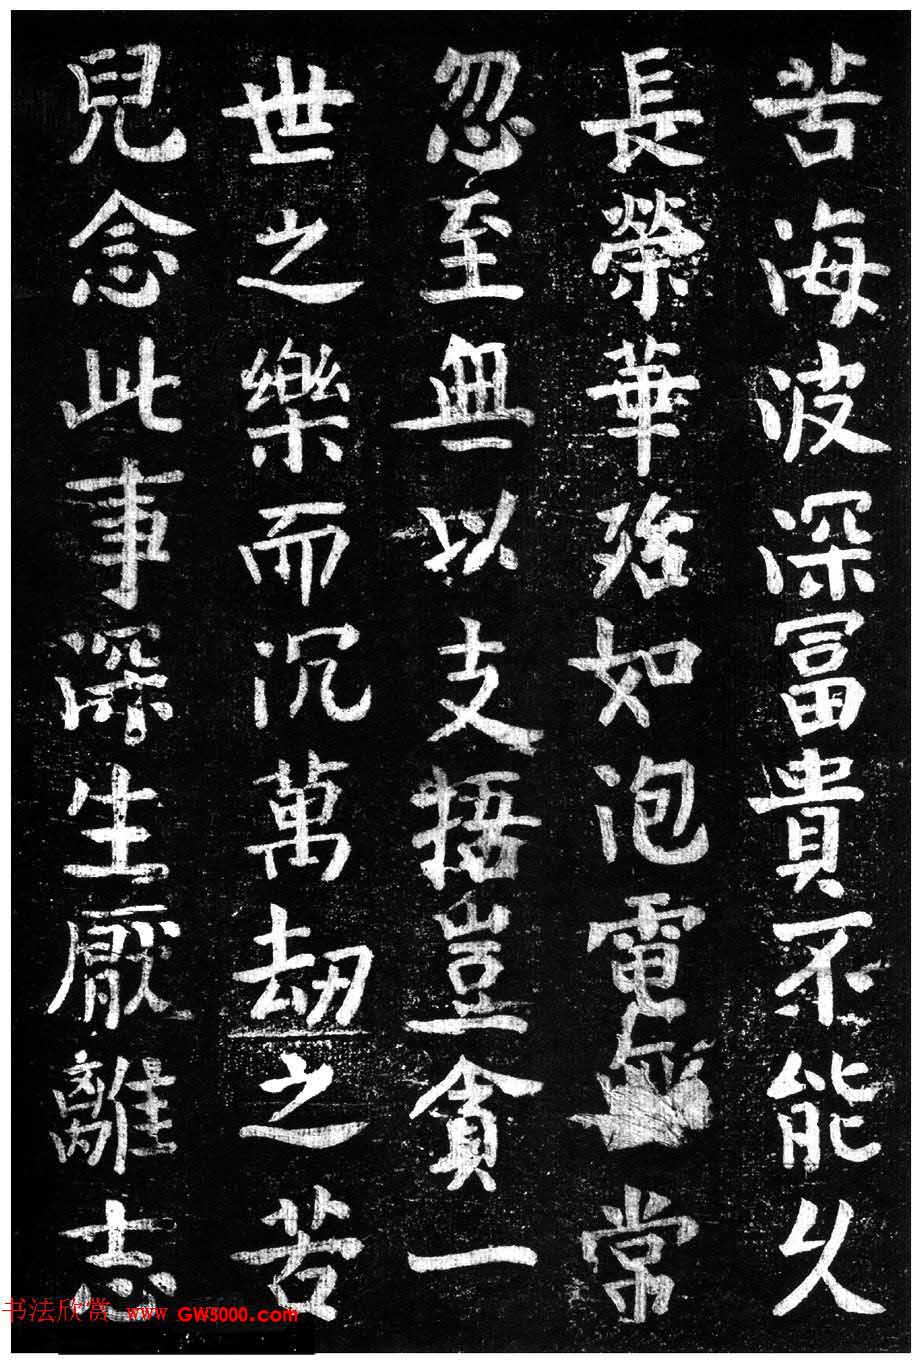 苦海波深富貴不能久
長榮華殆如泡電無常
忽至無以支捂豈貪一
世之樂而沉萬劫之苦
兒念此事深生厭離志
书法欣赏 www.GW5000.com